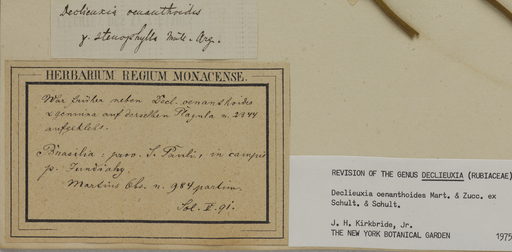 Declieuxia oenanthoides
γ. stenophylla Müll. Arg.
HERBARIUM REGIUM MONACENSE.
War früher neben Decl. oenanthoides
α genuina auf derselben Plagula n. 2344
aufgeklebt.
Brasilia: prov. S. Pauli, in campis
p. Jundiahy
Martius Obs. n. 984 partim.
Sol. V. 91.
REVISION OF THE GENUS DECLIEUXIA (RUBIACEAE)
Declieuxia oenanthoides Mart. & Zucc. ex
Schult. & Schult.
J. H. Kirkbride, Jr.
THE NEW YORK BOTANICAL GARDEN 1975